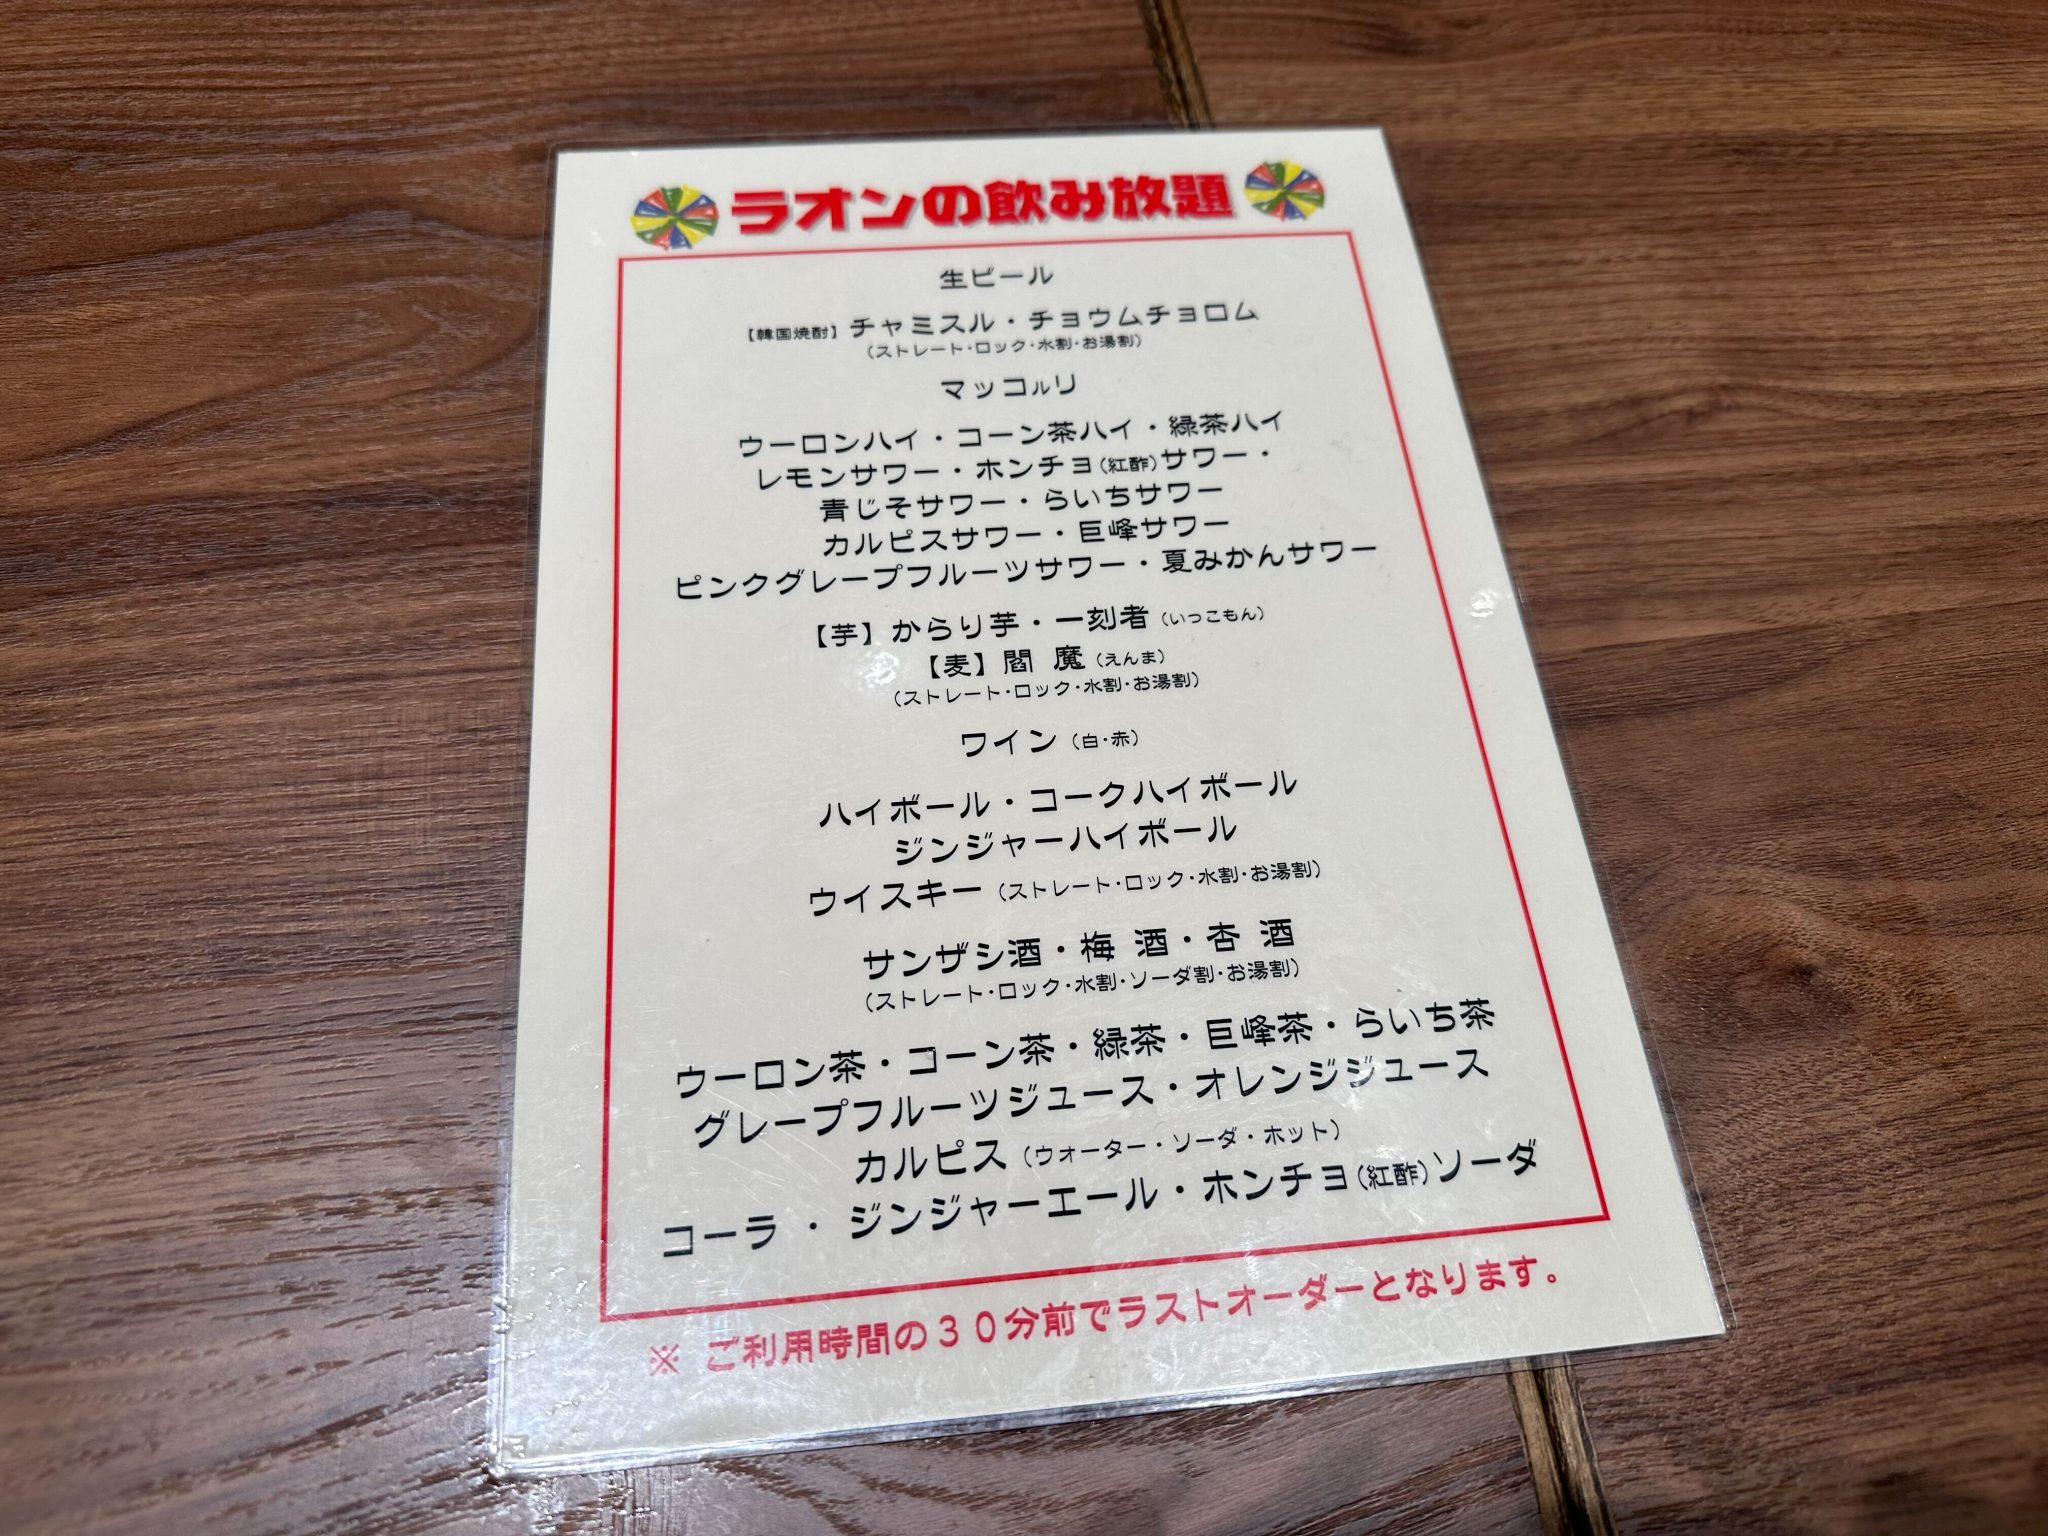 ラオンの飲み放題
生ビール
【韓国焼酎】チャミスル・チョウムチョロム
(ストレート・ロック・水割・お湯割)
マッコルリ
ウーロンハイ・コーン茶ハイ・緑茶ハイ
レモンサワー・ホンチョ(紅酢)サワー・
青じそサワー・らいちサワー
カルピスサワー・巨峰サワー
ピンクグレープフルーツサワー・夏みかんサワー
【芋】からり芋・一刻者(いっこもん)
【麦】閻 魔(えんま)
(ストレート・ロック・水割・お湯割)
ワイン(白・赤)
ハイボール・コークハイボール
ジンジャーハイボール
ウイスキー(ストレート・ロック・水割・お湯割)
サンザシ酒・梅 酒・杏 酒
(ストレート・ロック・水割・ソーダ割・お湯割)
ウーロン茶・コーン茶・緑茶・巨峰茶・らいち茶
グレープフルーツジュース・オレンジジュース
カルピス(ウォーター・ソーダ・ホット)
コーラ ・ ジンジャーエール・ホンチョ(紅酢)ソーダ
※ ご利用時間の30分前でラストオーダーとなります。